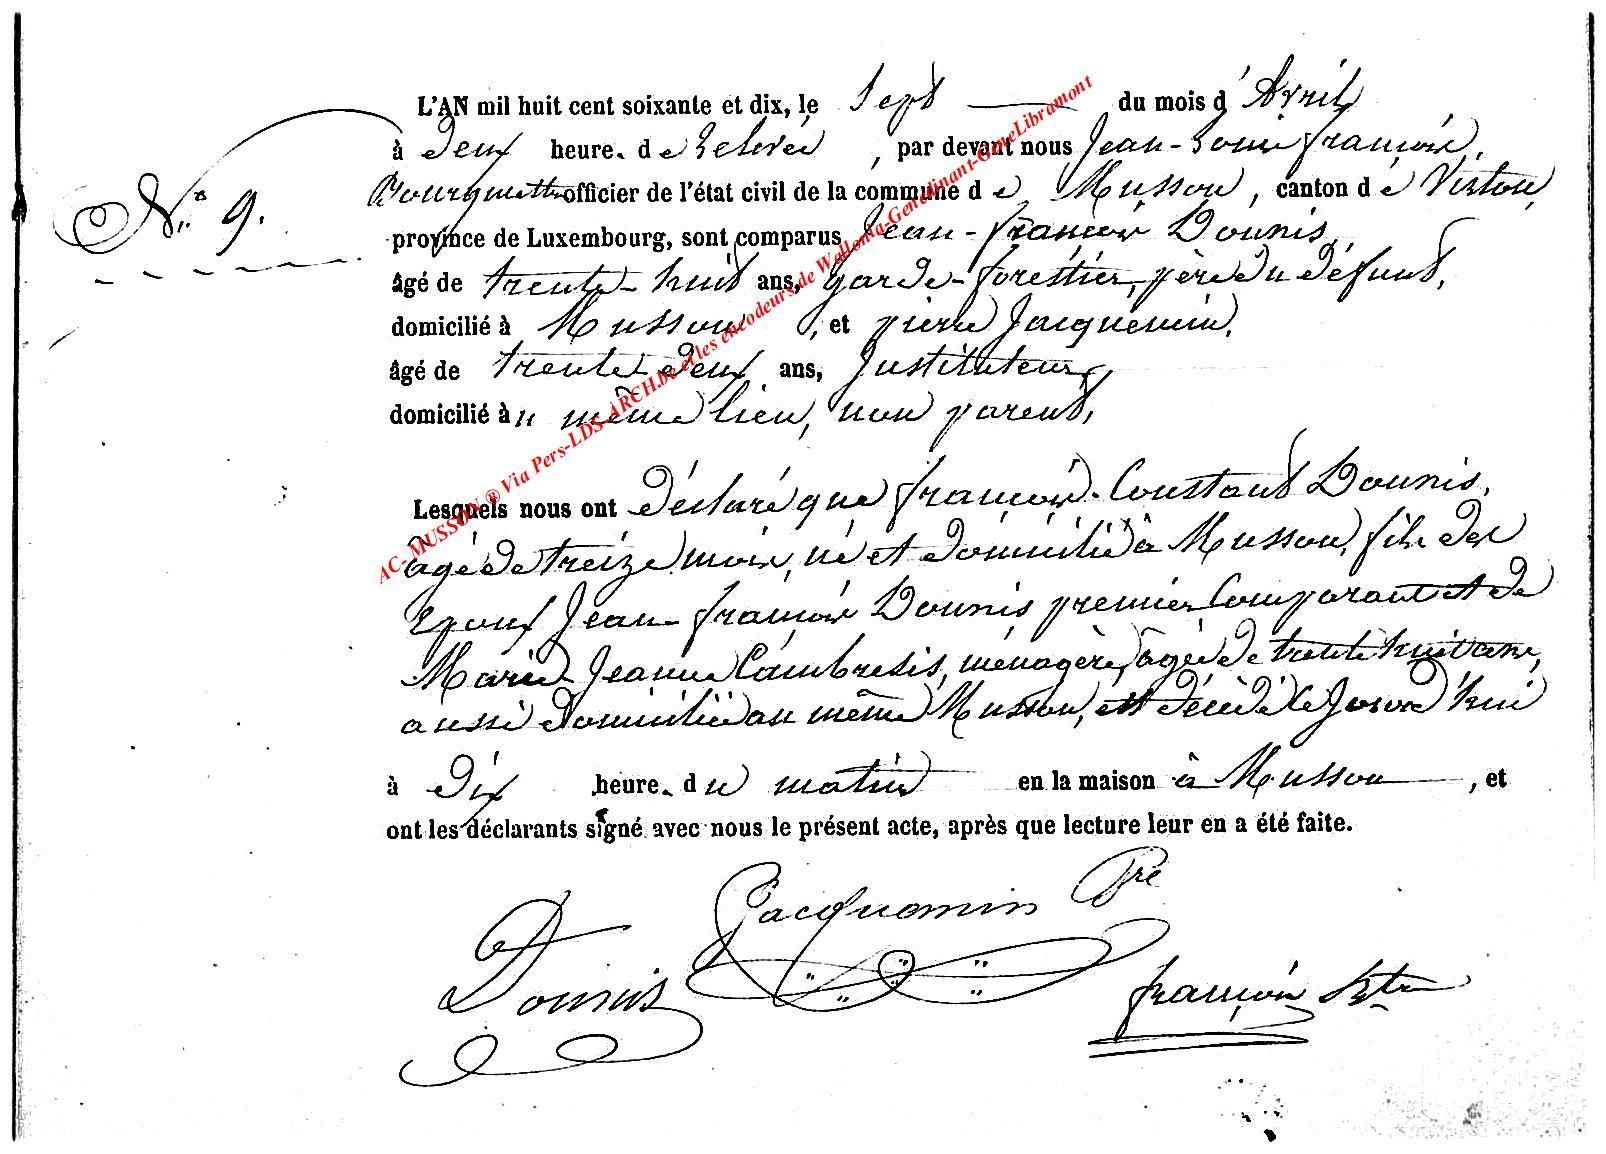 L'AN mil huit cent soixante et dix, le sept du mois d'Avril
à deux heure. de relevée, par devant nous Jean-Louis françois,
Bourgmettre officier de l'état civil de la commune de Musson, canton de Virton,
province de Luxembourg, sont comparus Jean-françois Dounis,
âgé de trente-huit ans, garde-forestier, père du défunt,
domicilié à Musson, et pierre Jacquemin,
âgé de trente-deux ans, Instituteur,
domicilié àu même lieu, non parent,
N° 9.
Lesquels nous ont déclaré que françois-Constant Dounis,
agé de treize mois, né et domicilié à Musson, fils des
Epoux Jean-françois Dounis premier Comparant et de
Marie-Jeanne Cambresis, ménagère, agée de trente huit ans,
aussi domiciliée au même Musson, est décédé ce Jourd'hui
à dix heure. du matin en la maison à Musson, et
ont les déclarants signé avec nous le présent acte, après que lecture leur en a été faite.
Jacquemin Pre
Dounis
françois
AC-MUSSON ® Via Pers-LDS-ARCH.be et les encodeurs de Wallonia-Genedinant-GeneLibramont